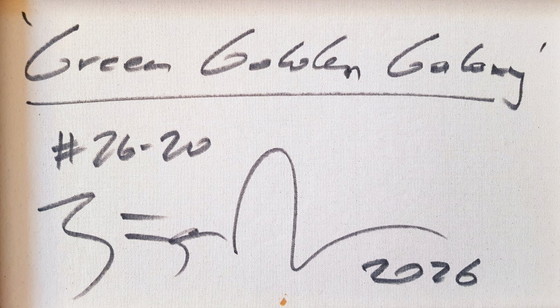 'Green Golden Galaxy'
#26-20
2026